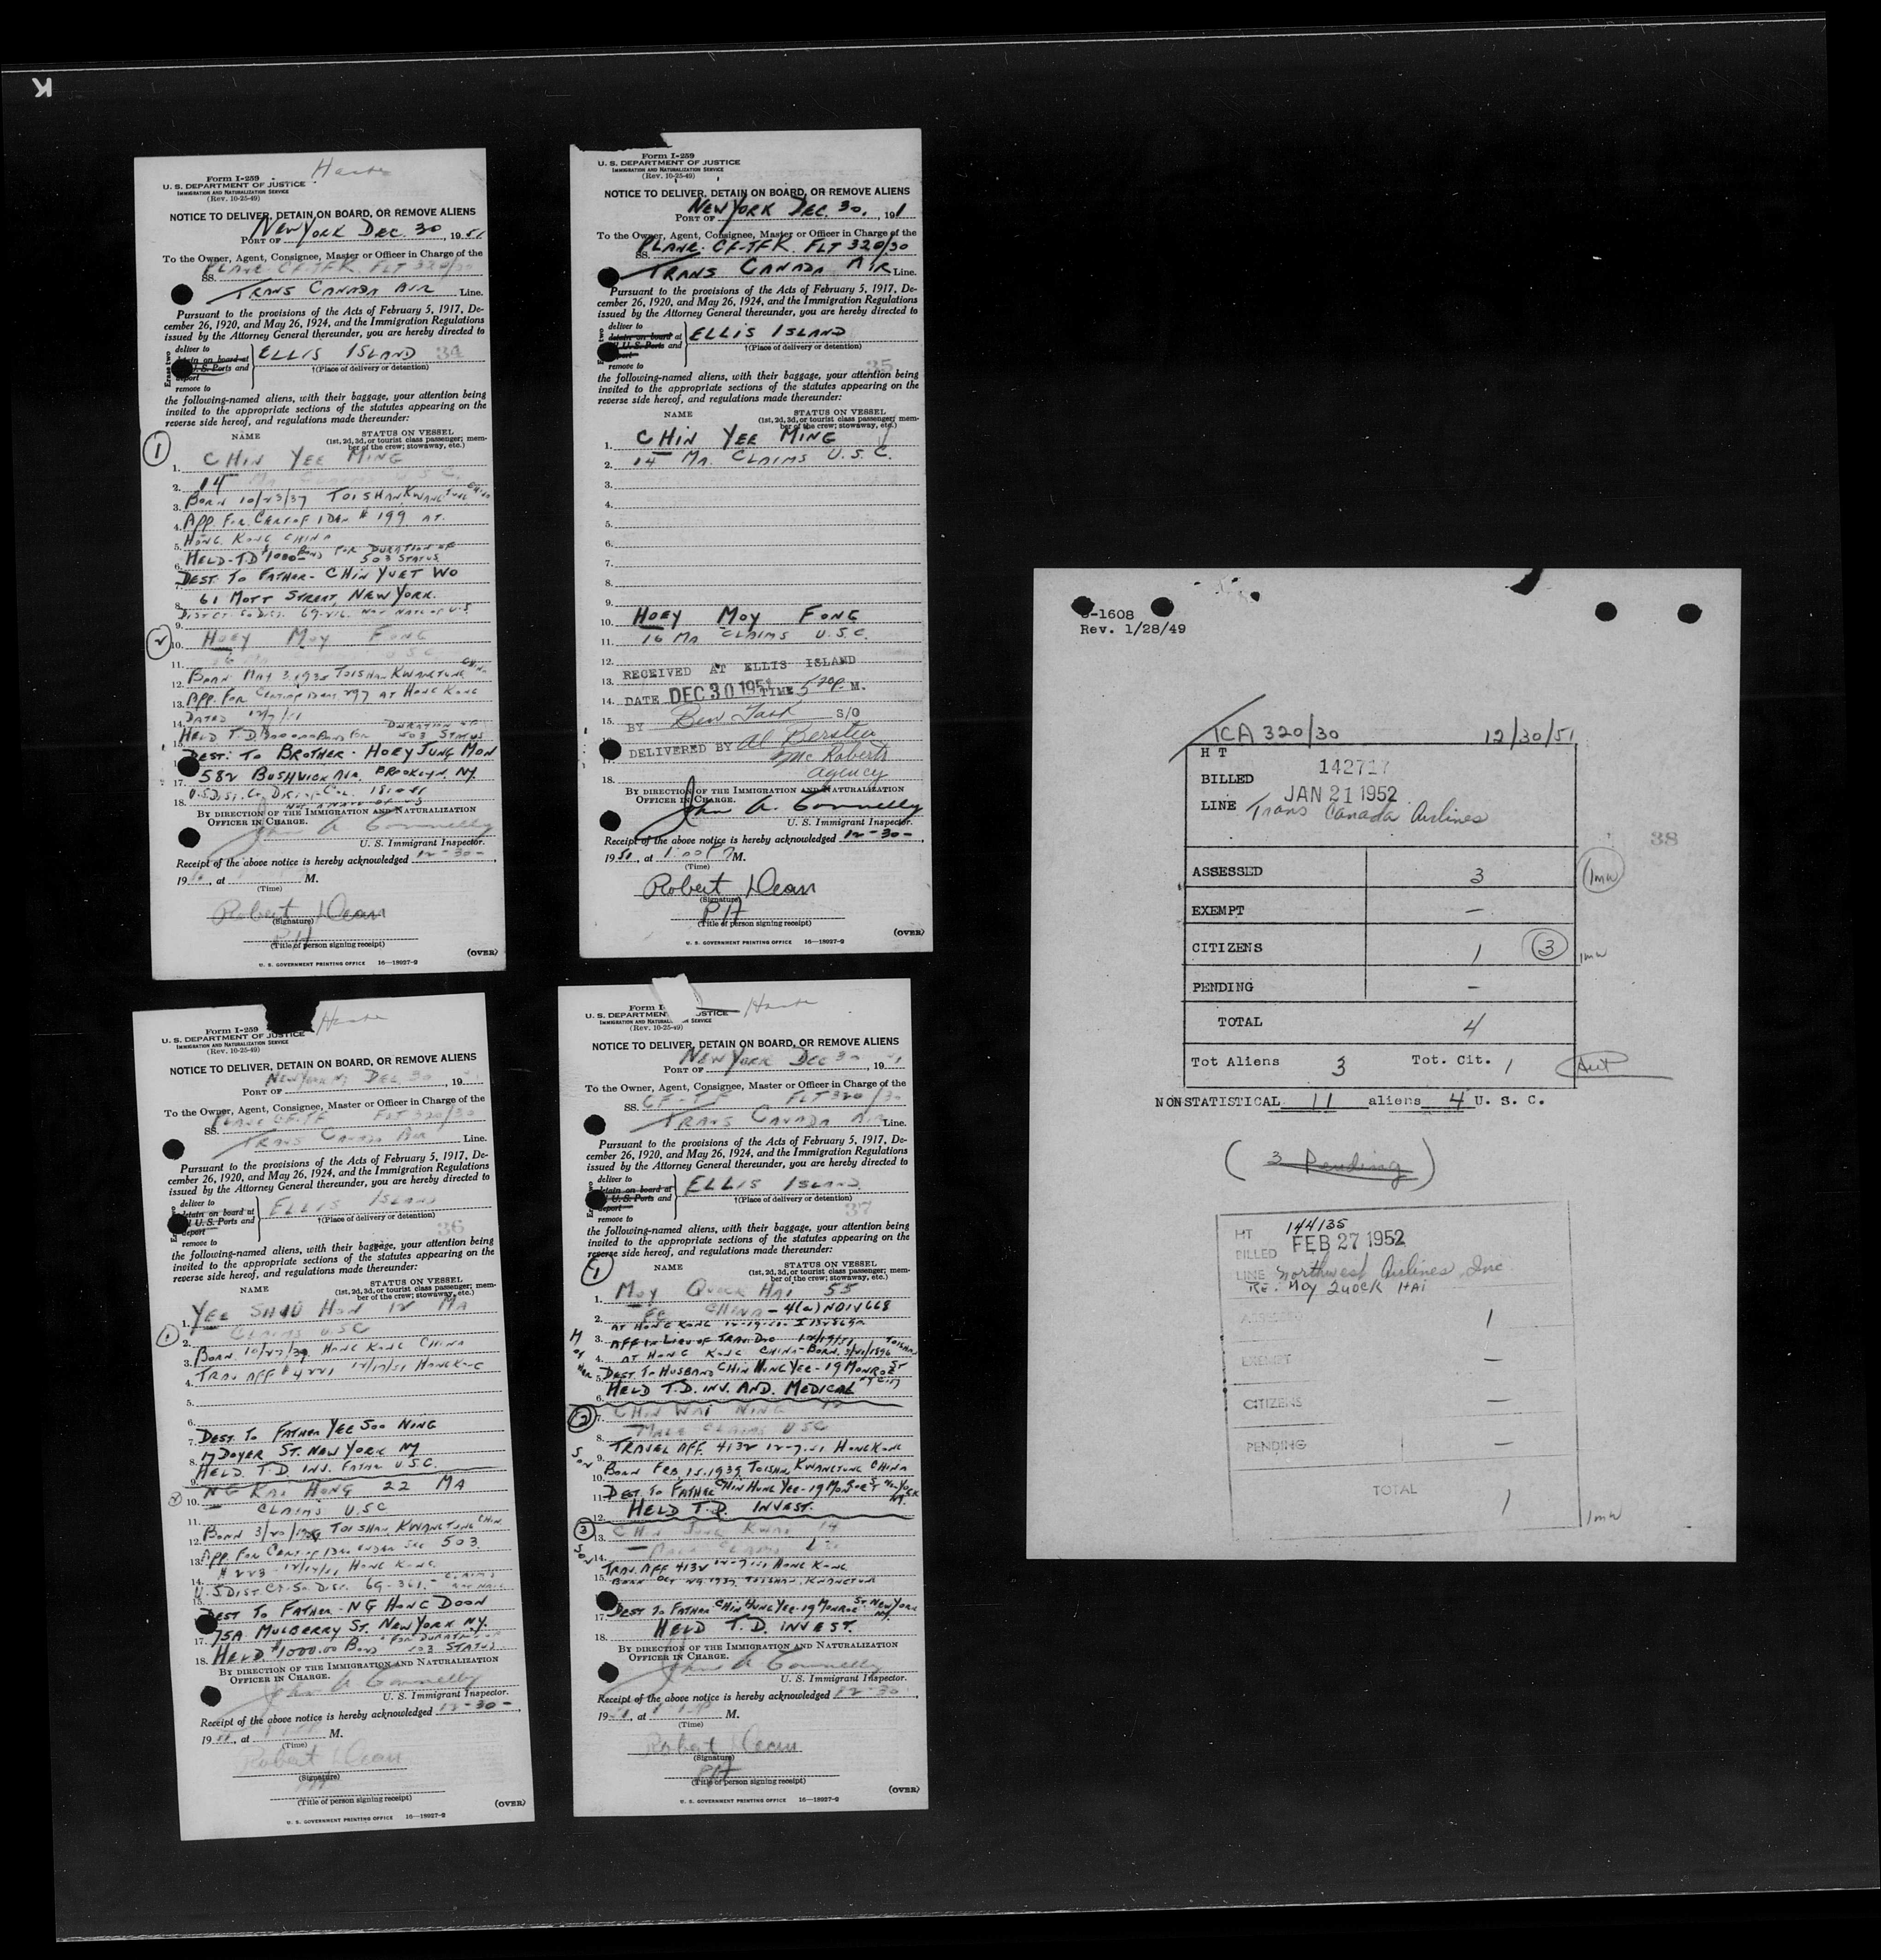 K
Form I-259
U. S. DEPARTMENT OF JUSTICE
IMMIGRATION AND NATURALIZATION SERVICE
(Rev. 10-25-49)
NOTICE TO DELIVER, DETAIN ON BOARD, OR REMOVE ALIENS
PORT OF NEW YORK DEC. 30, 1951
To the Owner, Agent, Consignee, Master or Officer in Charge of the
SS. PLANE- CF-TFK FLT 320/30
TRANS CANADA AIR Line.
Pursuant to the provisions of the Acts of February 5, 1917, De-
cember 26, 1920, and May 26, 1924, and the Immigration Regulations
issued by the Attorney General thereunder, you are hereby directed to
deliver to
detain on board at
U. S. Ports and
deport
remove to
ELLIS ISLAND 34
†(Place of delivery or detention)
the following-named aliens, with their baggage, your attention being
invited to the appropriate sections of the statutes appearing on the
reverse side hereof, and regulations made thereunder:
NAME STATUS ON VESSEL
(1st, 2d, 3d, or tourist class passenger; mem-
ber of the crew; stowaway, etc.)
1
1. CHIN YEE MING
2. 14 MA U.S.C.
3. BORN 10/23/37 TOISHAN KWANGTUNG CHINA
4. APP. FOR CERT OF IDEN # 199 AT
5. HONG KONG CHINA
6. HELD-T.D $1000 BOND FOR DURATION OF 503 STATUS
7. DEST. TO FATHER- CHIN YUET WO
8. 61 MOTT STREET, NEW YORK.
9.
2
10. HOEY MOY FONG
11. 16 MA USC
12. BORN MAY 3, 1935 TOISHAN KWANGTUNG CHINA
13. APP. FOR CERT OF IDEN 297 AT HONG KONG
14. DATED 12/7/51
15. HELD T.D. BOND FOR DURATION OF 503 STATUS
DEST: TO BROTHER- HOEY JUNG MON
17. 582 BUSHWICK AVE. BROOKLYN, NY.
18.
BY DIRECTION OF THE IMMIGRATION AND NATURALIZATION
OFFICER IN CHARGE.
John A Connelly
U. S. Immigrant Inspector.
Receipt of the above notice is hereby acknowledged 12-30-,
19, at M.
(Time)
Robert Dean
(Signature)
(Title of person signing receipt)
(OVER)
U. S. GOVERNMENT PRINTING OFFICE 16—18927-2
Form I-259
U. S. DEPARTMENT OF JUSTICE
IMMIGRATION AND NATURALIZATION SERVICE
(Rev. 10-25-49)
NOTICE TO DELIVER, DETAIN ON BOARD, OR REMOVE ALIENS
PORT OF NEW YORK DEC. 30., 191
To the Owner, Agent, Consignee, Master or Officer in Charge of the
SS. PLANE- CF-TFK FLT 320/30
TRANS CANADA AIR Line.
Pursuant to the provisions of the Acts of February 5, 1917, De-
cember 26, 1920, and May 26, 1924, and the Immigration Regulations
issued by the Attorney General thereunder, you are hereby directed to
deliver to
detain on board at
U. S. Ports and
remove to
ELLIS ISLAND
†(Place of delivery or detention)
35
the following-named aliens, with their baggage, your attention being
invited to the appropriate sections of the statutes appearing on the
reverse side hereof, and regulations made thereunder:
NAME STATUS ON VESSEL
(1st, 2d, 3d, or tourist class passenger; mem-
ber of the crew; stowaway, etc.)
1. CHIN YEE MING
2. 14 MA. CLAIMS U.S.C.
3.
4.
5.
6.
7.
8.
9.
10. HOEY MOY FONG
11. 16 MA CLAIMS U.S.C.
12.
13. RECEIVED AT ELLIS ISLAND
14. DATE DEC 30 1951 TIME 5 20 P. M.
15. BY Ben Task S/O
DELIVERED BY Al Berstein
Mc Roberts
18. agency
BY DIRECTION OF THE IMMIGRATION AND NATURALIZATION
OFFICER IN CHARGE.
John A. Connelly
U. S. Immigrant Inspector.
Receipt of the above notice is hereby acknowledged 12-30-,
1951, at 1:00 P M.
(Time)
Robert Dean
(Signature)
(Title of person signing receipt)
(OVER)
U. S. GOVERNMENT PRINTING OFFICE 16—18927-2
Form I-259
U. S. DEPARTMENT OF JUSTICE
IMMIGRATION AND NATURALIZATION SERVICE
(Rev. 10-25-49)
NOTICE TO DELIVER, DETAIN ON BOARD, OR REMOVE ALIENS
PORT OF NEW YORK DEC. 30, 19
To the Owner, Agent, Consignee, Master or Officer in Charge of the
SS. PLANE CF-TF FLT 320/30
TRANS CANADA AIR Line.
Pursuant to the provisions of the Acts of February 5, 1917, De-
cember 26, 1920, and May 26, 1924, and the Immigration Regulations
issued by the Attorney General thereunder, you are hereby directed to
deliver to
detain on board at
U. S. Ports and
deport
remove to
ELLIS ISLAND
†(Place of delivery or detention)
36
the following-named aliens, with their baggage, your attention being
invited to the appropriate sections of the statutes appearing on the
reverse side hereof, and regulations made thereunder:
NAME STATUS ON VESSEL
(1st, 2d, 3d, or tourist class passenger; mem-
ber of the crew; stowaway, etc.)
1
1. YEE SHIU HON 12 MA
2. CLAIMS USC
3. BORN 10/27/39 HONG KONG CHINA
4. TRAV AFF # 4221 12/17/51 HONG KONG
5.
6.
7. DEST. TO FATHER YEE SOO NING
8. 17 DOYER ST. NEW YORK NY
9. HELD T.D. INV. FATHER U.S.C.
10. NG KAI HONG 22 MA
11. CLAIMS U.S.C
12. BORN 3/20/ TOISHAN KWANGTUNG CHINA
13. APP. FOR CERT OF IDEN UNDER SEC 503
14. # 223 - 12/17/51 HONG KONG.
15. U.S DIST. CT. SO. DIST. 69-361.- CLAIMS
DEST TO FATHER - NG HONG DOON
17. 75A MULBERRY ST. NEW YORK NY.
18. HELD $1000.00 BOND FOR DURATION OF 503 STATUS
BY DIRECTION OF THE IMMIGRATION AND NATURALIZATION
OFFICER IN CHARGE.
John A Connelly
U. S. Immigrant Inspector.
Receipt of the above notice is hereby acknowledged 12-30-,
1951, at M.
(Time)
Robert Dean
(Signature)
(Title of person signing receipt)
(OVER)
U. S. GOVERNMENT PRINTING OFFICE 16—18927-2
Form I-
U. S. DEPARTMEN STICE
IMMIGRATION AND NATURAL N SERVICE
(Rev. 10-25-49)
NOTICE TO DELIVER, DETAIN ON BOARD, OR REMOVE ALIENS
PORT OF NEW YORK DEC 30, 19
To the Owner, Agent, Consignee, Master or Officer in Charge of the
SS. CF-TF FLT 320/30
TRANS CANADA AIR Line.
Pursuant to the provisions of the Acts of February 5, 1917, De-
cember 26, 1920, and May 26, 1924, and the Immigration Regulations
issued by the Attorney General thereunder, you are hereby directed to
deliver to
detain on board at
U. S. Ports and
deport
remove to
ELLIS ISLAND.
†(Place of delivery or detention)
37
the following-named aliens, with their baggage, your attention being
invited to the appropriate sections of the statutes appearing on the
reverse side hereof, and regulations made thereunder:
NAME STATUS ON VESSEL
(1st, 2d, 3d, or tourist class passenger; mem-
ber of the crew; stowaway, etc.)
1
1. MOY QUOCK HAI 55
2. FE CHINA - 4(a) NDIV668
3. AFF IN LIEU OF TRAV. DOC 12/19/51
4. AT HONG KONG CHINA- BORN 3/21/1896 TOISHAN
5. DEST. TO HUSBAND CHIN HUNG YEE- 19 MONROE ST
6. HELD T.D. INV. AND. MEDICAL
2
7. CHIN WAI NING 12
8. MALE CLAIMS USC
9. TRAVEL AFF. 4132 12-7-51 HONG KONG
SON
10. BORN FEB. 15. 1939 TOISHAN KWANGTUNG CHINA
11. DEST. TO FATHER CHIN HUNG YEE- 19 MONROE ST NEW YORK NY.
12. HELD T.D. INVEST.
3
13. CHIN JUNG KWAI 14
SON
14. MALE CLAIMS USC
15. TRAV. AFF 4132 12-7-51 HONG KONG.
BORN OCT 29 1937. TOISHAN. KWANGTUNG
17. DEST TO FATHER CHIN HUNG YEE- 19 MONROE ST. NEW YORK NY.
18. HELD T.D. INVEST.
BY DIRECTION OF THE IMMIGRATION AND NATURALIZATION
OFFICER IN CHARGE.
John A Connelly
U. S. Immigrant Inspector.
Receipt of the above notice is hereby acknowledged 12-30,
1951, at M.
(Time)
Robert Dean
(Signature)
(Title of person signing receipt)
(OVER)
U. S. GOVERNMENT PRINTING OFFICE 16—18927-2
-1608
Rev. 1/28/49
TCA 320/30 12/30/51
H T
BILLED 142717
JAN 21 1952
LINE Trans Canada Airlines
38
ASSESSED 3 1mw
EXEMPT —
CITIZENS 1 3 1mw
PENDING —
TOTAL 4
Tot Aliens 3 Tot. Cit. 1
NONSTATISTICAL 11 aliens 4 U. S. C.
(3 Pending)
HT 144135
BILLED FEB 27 1952
LINE Northwest Airlines, Inc
RE: Moy Quock HAI
ASSESSED 1
EXEMPT —
CITIZENS —
PENDING —
TOTAL 1 1mw